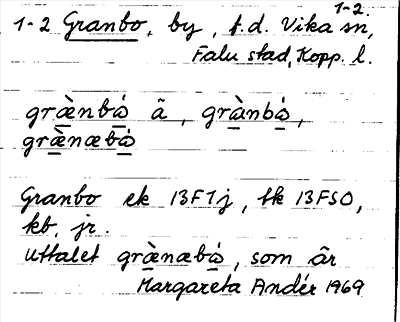 1-2.
1-2 Granbo, by, f.d. Vika sn,
Falu stad, Kopp. l.
grànbó ã, grànbó,
grànæbó
Granbo ek 13F7j, tk 13FSO,
kb, jr.
uttalet grànæbó, som är
Margareta Andér 1969